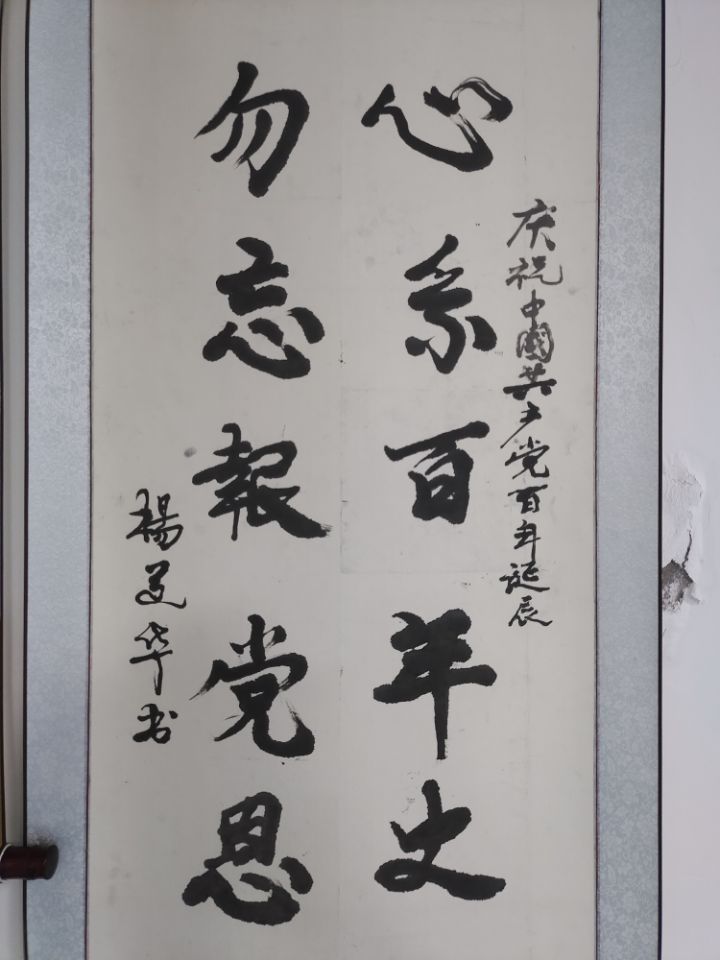 庆祝中國共产党百年誕辰
心系百年史
勿忘報党恩
楊道华书